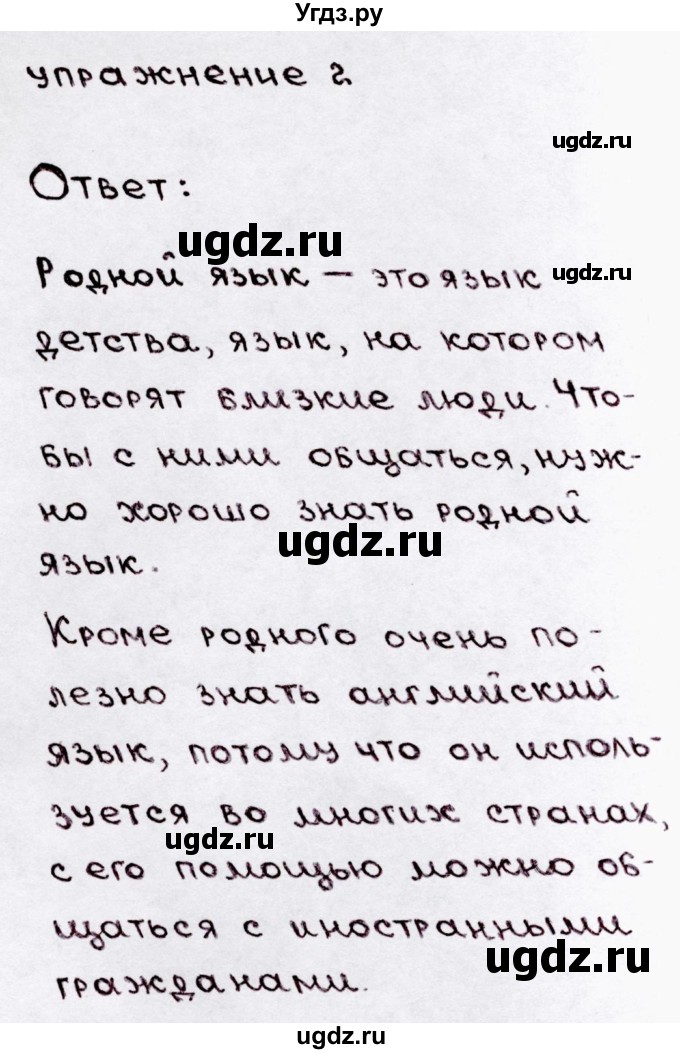 Угдз.ру
упражнение 2.
ugdz.ru
Ответ:
ugdz.ru
Родной язык – это язык
ugdz.ru
детства, язык, на котором
говорят близкие люди. Что-
бы с ними общаться, нуж-
но хорошо знать родной
ugdz.ru
язык.
Кроме родного очень по-
лезно знать английский
язык, потому что он исполь-
зуется во многих странах,
ugdz.ru
с его помощью можно об-
щаться с иностранными
ugdz.ru
гражданами.
ugdz.ru